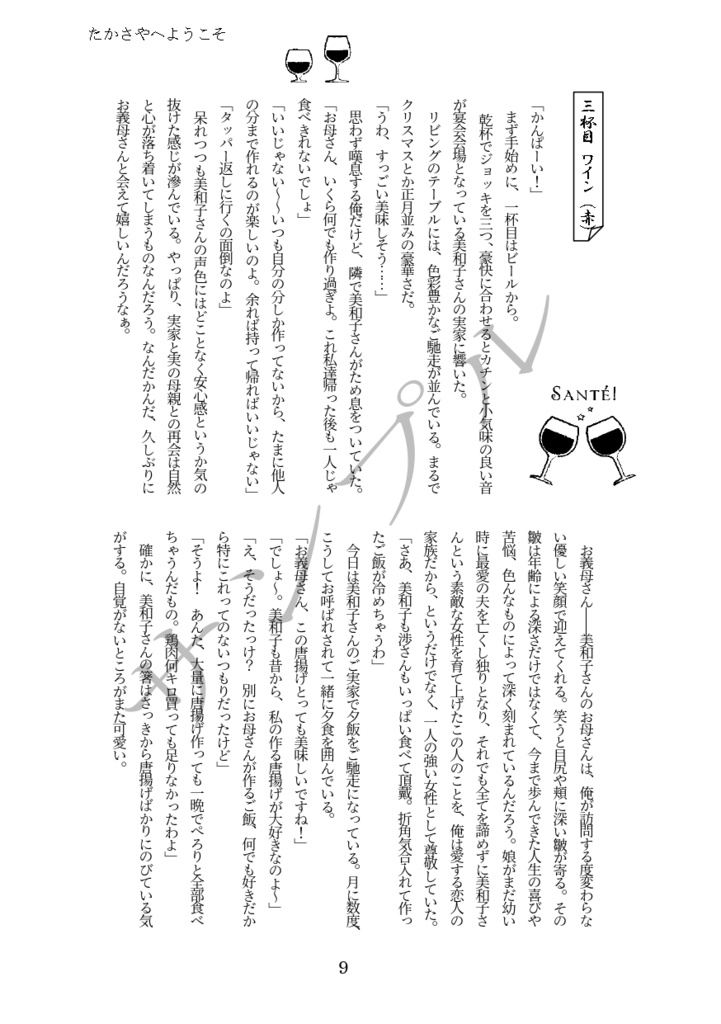 たかさやへようこそ
三杯目 ワイン（赤）
「かんぱーい！」
　まず手始めに、一杯目はビールから。
　乾杯でジョッキを三つ、豪快に合わせるとカチンと小気味の良い音
が宴会会場となっている美和子さんの実家に響いた。
　リビングのテーブルには、色彩豊かなご馳走が並んでいる。まるで
クリスマスとか正月並みの豪華さだ。
「うわ、すっごい美味しそう……」
　思わず嘆息する俺だけど、隣で美和子さんがため息をついていた。
「お母さん、いくら何でも作り過ぎよ。これ私達帰った後も一人じゃ
食べきれないでしょ」
「いいじゃない〜いつも自分の分しか作ってないから、たまに他人
の分まで作れるのが楽しいのよ。余れば持って帰ればいいじゃない」
「タッパー返しに行くの面倒なのよ」
　呆れつつも美和子さんの声色にはどことなく安心感というか気の
抜けた感じが滲んでいる。やっぱり、実家と実の母親との再会は自然
と心が落ち着いてしまうものなんだろう。なんだかんだ、久しぶりに
お義母さんと会えて嬉しいんだろうなぁ。
SANTÉ!
　お義母さん――美和子さんのお母さんは、俺が訪問する度変わらな
い優しい笑顔で迎えてくれる。笑うと目尻や頬に深い皺が寄る。その
皺は年齢による深さだけではなくて、今まで歩んできた人生の喜びや
苦悩、色んなものによって深く刻まれているんだろう。娘がまだ幼い
時に最愛の夫を亡くし独りとなり、それでも全てを諦めずに美和子さ
んという素敵な女性を育て上げたこの人のことを、俺は愛する恋人の
家族だから、というだけでなく、一人の強い女性として尊敬していた。
「さあ、美和子も渉さんもいっぱい食べて頂戴。折角気合入れて作っ
たご飯が冷めちゃうわ」
　今日は美和子さんのご実家で夕飯をご馳走になっている。月に数度、
こうしてお呼ばれされて一緒に夕食を囲んでいる。
「お義母さん、この唐揚げとっても美味しいですね！」
「でしょ〜。美和子も昔から、私の作る唐揚げが大好きなのよ〜」
「え、そうだったっけ？　別にお母さんが作るご飯、何でも好きだか
ら特にこれってのないつもりだったけど」
「そうよ！　あんた、大量に唐揚げ作っても一晩でぺろりと全部食べ
ちゃうんだもの。鶏肉何キロ買っても足りなかったわよ」
　確かに、美和子さんの箸はさっきから唐揚げばかりにのびている気
がする。自覚がないところがまた可愛い。
サンプル
9